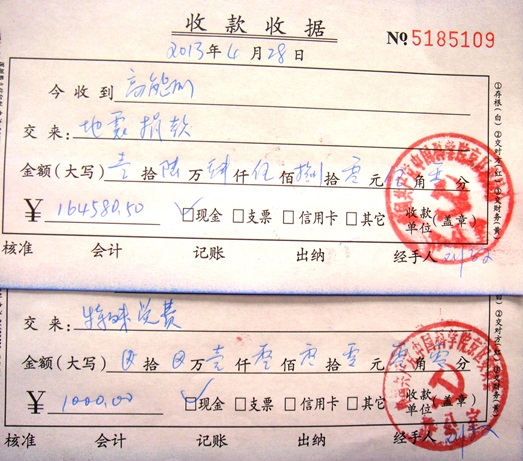 收款收据
№ 5185109
2013年4月28日
今收到 高能所
交来：地震捐款
金额(大写) 壹拾陆万肆仟伍佰捌拾零元伍角零分
¥ 164580.50 ☑现金 □支票 □信用卡 □其它 收款单位(盖章)
核准 会计 记账 出纳 经手人
①存根(白) ②交对方(红) ③交财务(黄)
交来：特殊党费
金额(大写) ⊗拾⊗万壹仟零佰零拾零元零角零分
¥ 1000.00 ☑现金 □支票 □信用卡 □其它 收款单位(盖章)
核准 会计 记账 出纳 经手人